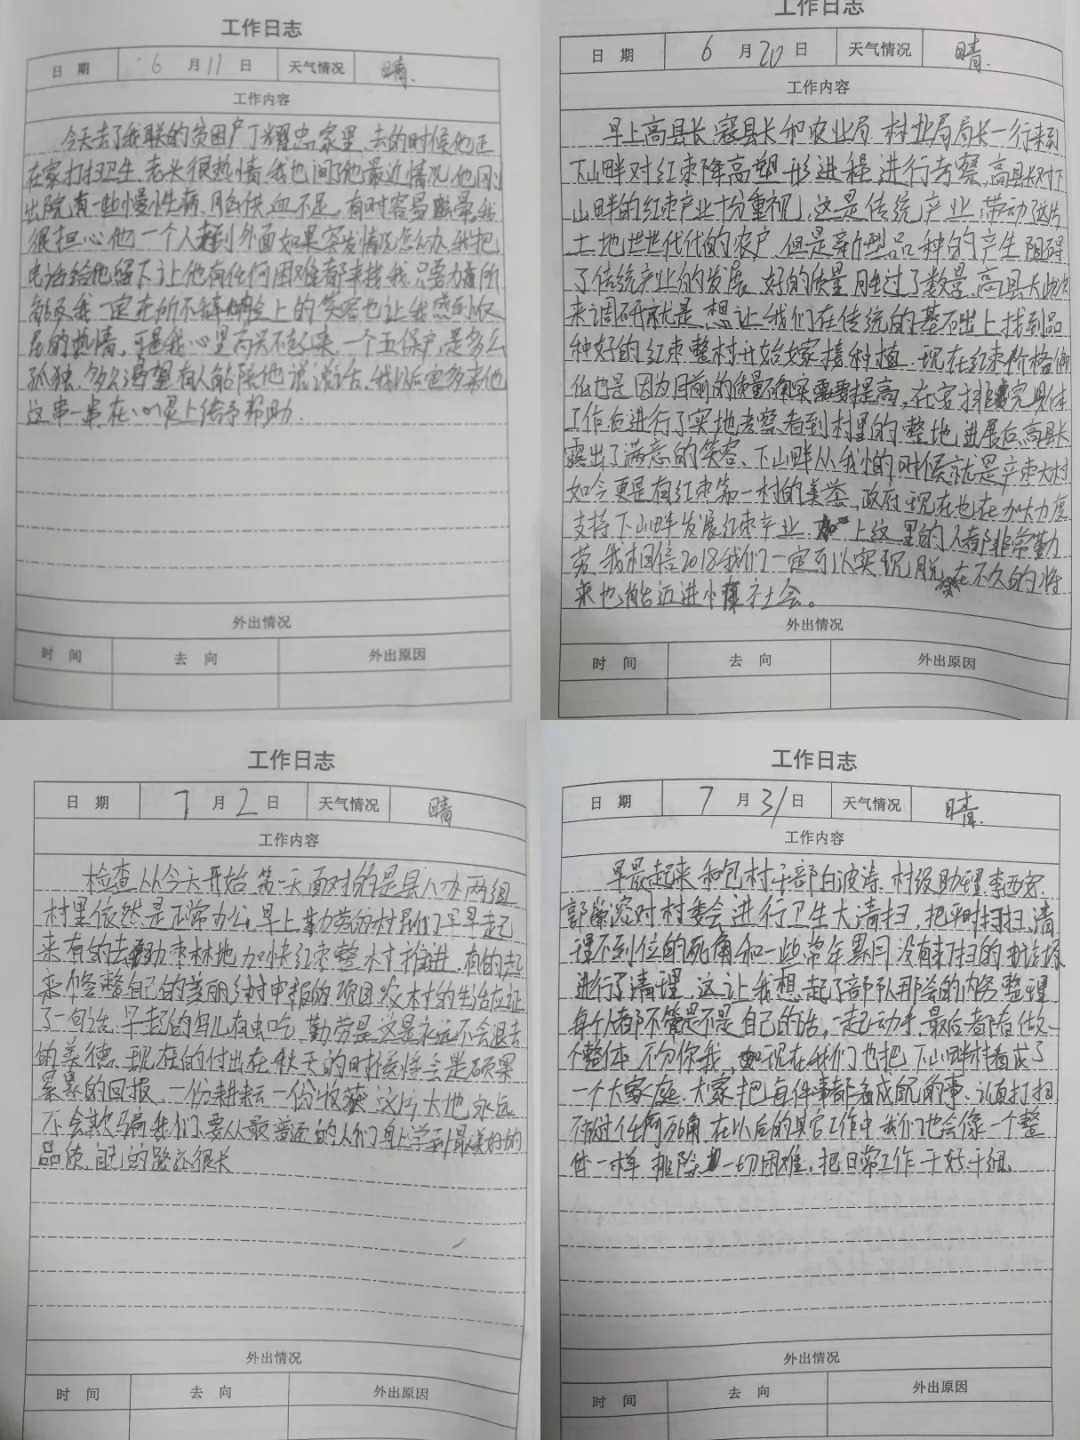 工作日志
日 期 6 月 11 日 天气情况 晴.
工作内容
今天去了我联的贫困户丁耀忠家里,去的时候他正
在家打扫卫生,老头很热情,我也问了他最近情况,他刚
出院,有一些慢性病,脑供血不足,有时容易晕,我
很担心他一个人到外面如果突发情况怎么办,我把
电话给他留下让他有任何困难都来找我,只要力所
能及我一定在所不辞,脸上的笑容也让我感到
的热情,可是我心里高兴不起来,一个五保户,是多么
孤独,多么渴望有人能陪他说说话,我以后也多来他
这串一串在心灵上给予帮助.
外出情况
时 间 去 向 外出原因
工作日志
日 期 6 月 20 日 天气情况 晴.
工作内容
早上高县长,寇县长和农业局,林业局局长一行来到
下山畔对红枣降高塑形进程进行考察,高县长对下
山畔的红枣产业十分重视,这是传统产业,带动了这片
土地世世代代的农户,但是新型品种的产生阻碍
了传统产业的发展,好的质量胜过了数量,高县长此次
来调研就是想让我们在传统的基础上找到品
种好的红枣整村开始嫁接种植,现在红枣价格
低也是因为目前的质量确实需要提高,在安排完具体
工作后进行了实地考察,看到村里的整地进展后,高县长
露出了满意的笑容,下山畔从我小的时候就是辛枣大村
如今更是有红枣第一村的美誉,政府现在也在加大力度
支持下山畔发展红枣产业,加上这里的人都非常勤
劳,我相信2018我们一定可以实现脱 在不久的将
来也能迈进小康社会。
外出情况
时 间 去 向 外出原因
工作日志
日 期 7 月 2 日 天气情况 晴
工作内容
检查从今天开始,第一天面对的是县人办两组
村里依然是正常办公,早上勤劳的村民们早早起
来有的去枣林地加快红枣整村推进,有的起
来修整自己的美丽乡村申报的项目,农村的生活应证
了一句话,早起的鸟儿有虫吃,勤劳是这是永远不会退去
的美德,现在的付出在秋天的时候将会是硕果
累累的回报,一份耕耘一份收获,这片大地永远
不会欺骗我们,要从最普通的人们身上学到最美好的
品质,自己的路还很长
外出情况
时 间 去 向 外出原因
工作日志
日 期 7 月 31 日 天气情况 晴.
工作内容
早晨起来和包村干部白波涛,村级助理李西安,
郭 对村委会进行卫生大清扫,把平时扫扫,清
理不到位的死角和一些常年累月没有打扫的垃圾
进行了清理,这让我想起了部队那会的内务整理
每个人都不管是不是自己的活,一起动手,最后都会做一
个整体,不分你我,如现在我们也把下山畔村看成了
一个大家庭,大家把每件事都看成自己的事,认真打扫
不放过任何死角,在以后的其它工作中我们也会像一个整
体一样,排除一切困难,把日常工作干好干细.
外出情况
时 间 去 向 外出原因